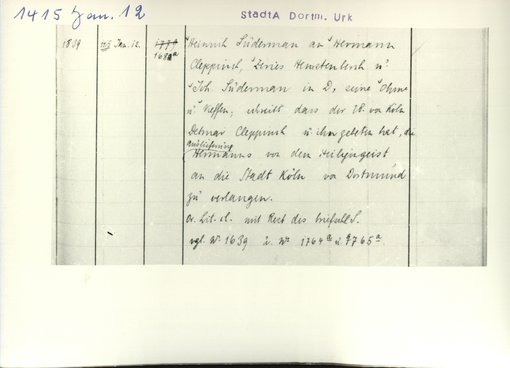 1415 Jan. 12
StadtA Dortm. Urk
1809 Jan. 12. 1771
168a
Heinrich Süderman an Hermann
Cleppinch, Hemetenbech u.
Joh. Süderman in D, seine Ohme
u. Neffen, schreibt dass der EB. von Köln
Detmar Cleppinch u. ihn gebeten hat, die
Auslieferung
Hermanns von dem Heiligengeist
an die Stadt Köln von Dortmund
zu verlangen.
Or. Lit. cl. mit Rest des briefschl. S.
vgl. Nr 1639 u. Nr 1764a u. 1765a